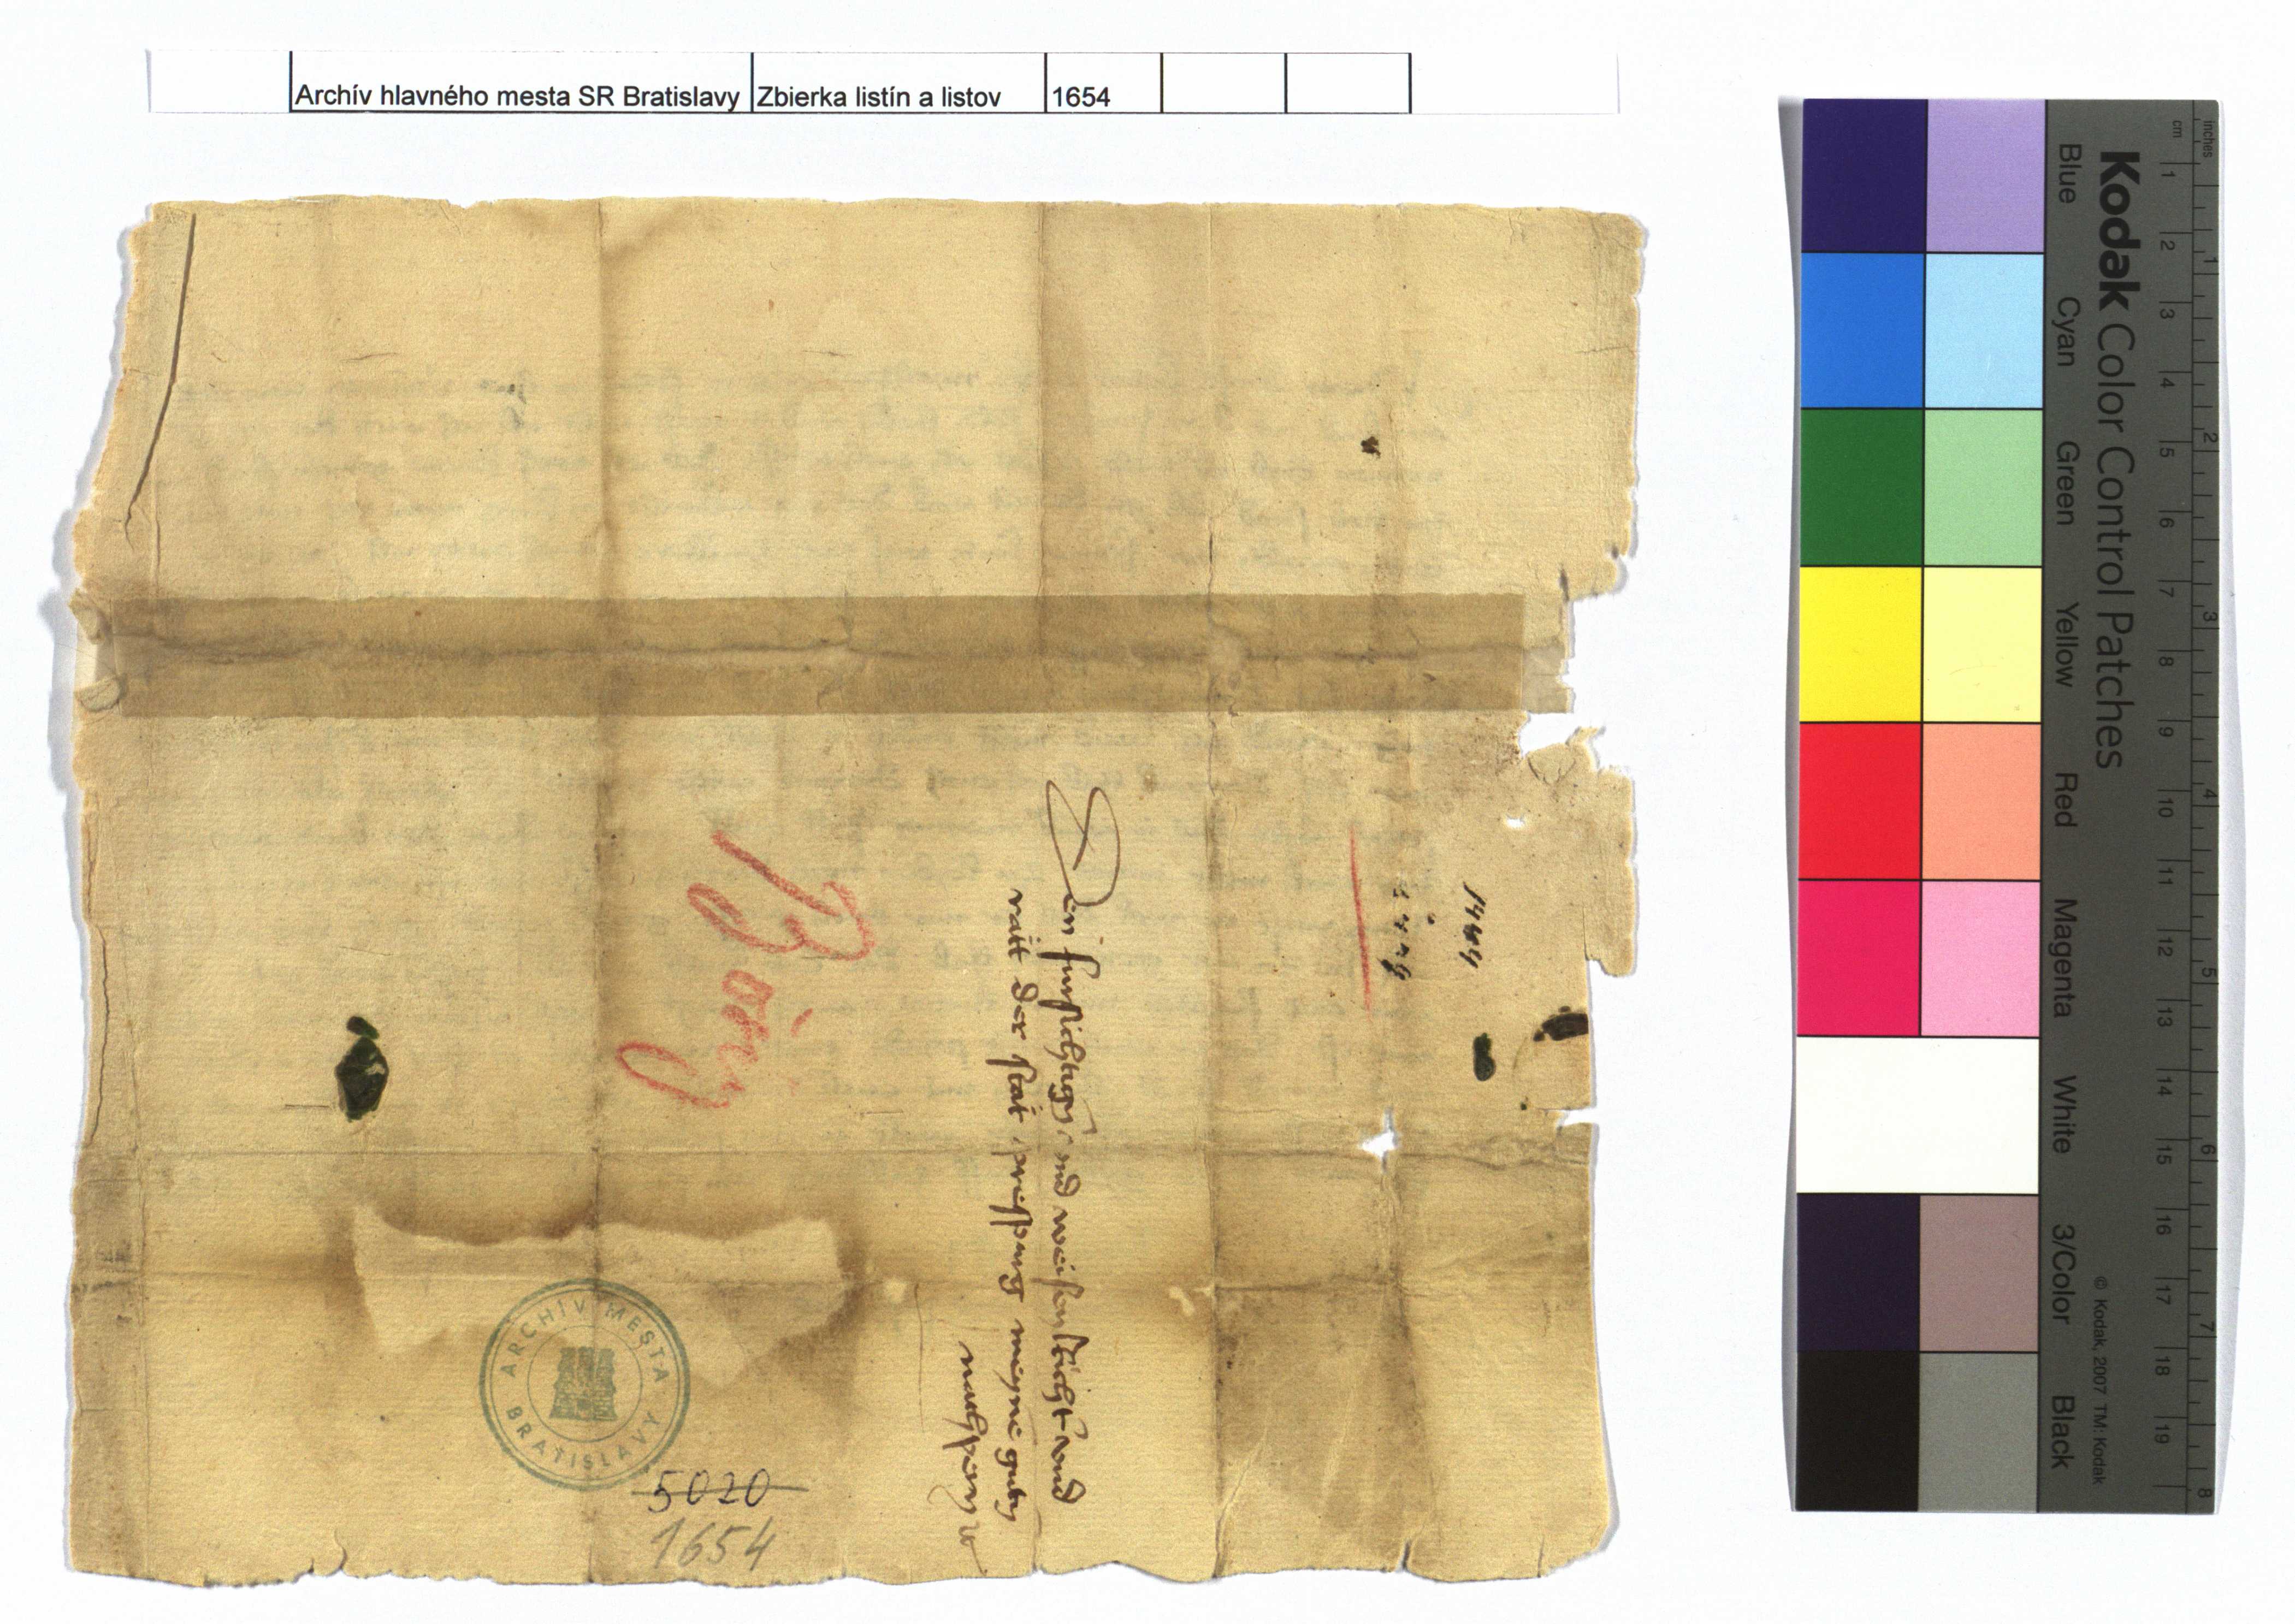 Archív hlavného mesta SR Bratislavy Zbierka listín a listov 1654
1449
Den fursichtigen und weisen Richter und
ratt der stat prespurg meyne guten
B
ARCHÍV MESTA BRATISLAVY
5020
1654
Kodak Color Control Patches
Blue Cyan Green Yellow Red Magenta White 3/Color Black
© Kodak, 2007 TM: Kodak
inches 1 2 3 4 5 6 7 8
cm 1 2 3 4 5 6 7 8 9 10 11 12 13 14 15 16 17 18 19